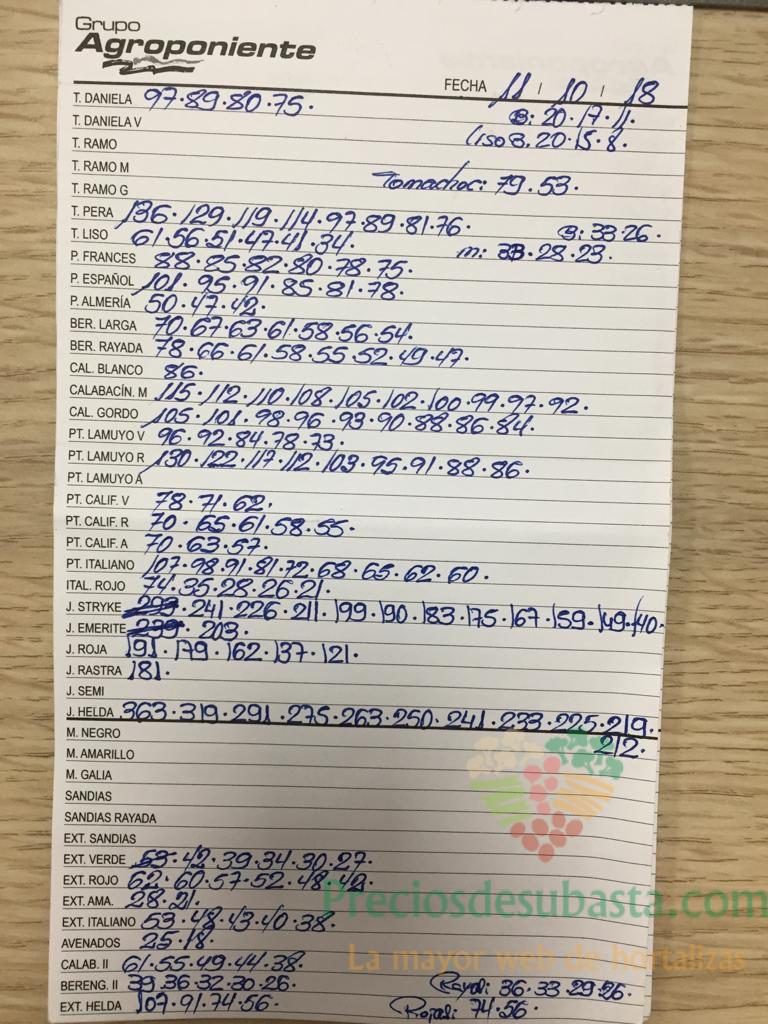 Grupo
Agroponiente
FECHA 11 / 10 / 18
T. DANIELA 97·89·80·75.
B: 20·17·11.
T. DANIELA V
Liso B. 20·15·8.
T. RAMO
T. RAMO M
Tomachoc: 79.53.
T. RAMO G
T. PERA 136·129·119·114·97·89·81·76. B: 33·26.
T. LISO 61·56·51·47·41·34. m: 33·28·23.
P. FRANCES 88·85·82·80·78·75.
P. ESPAÑOL 101·95·91·85·81·78.
P. ALMERÍA 50·47·42.
BER. LARGA 70·67·63·61·58·56·54.
BER. RAYADA 78·66·61·58·55·52·49·47.
CAL. BLANCO 86.
CALABACÍN. M 115·112·110·108·105·102·100·99·97·92.
CAL. GORDO 105·101·98·96·93·90·88·86·84.
PT. LAMUYO V 96·92·84·78·73.
PT. LAMUYO R 130·122·117·112·103·95·91·88·86.
PT. LAMUYO A
PT. CALIF. V 78·71·62.
PT. CALIF. R 70·65·61·58·55.
PT. CALIF. A 70·63·57.
PT. ITALIANO 107·98·91·81·72·68·65·62·60.
ITAL. ROJO 74·35·28·26·21.
J. STRYKE 241·226·211·199·190·183·175·167·159·149·140.
J. EMERITE 239· 203.
J. ROJA 191·179·162·137·121.
J. RASTRA 181.
J. SEMI
J. HELDA 363·319·291·275·263·250·241·233·225·219.
M. NEGRO 212.
M. AMARILLO
M. GALIA
SANDIAS
SANDIAS RAYADA
EXT. SANDIAS
EXT. VERDE 53·42·39·34·30·27.
EXT. ROJO 62·60·57·52·48·42.
EXT. AMA. 28·21.
Preciosdesubasta.com
EXT. ITALIANO 53·48·43·40·38.
AVENADOS 25·18.
La mayor web de hortalizas
CALAB. II 61·55·49·44·38.
BERENG. II 39·36·32·30·26. Rayada: 36·33·29·26.
EXT. HELDA 107·91·74·56. 74·56.